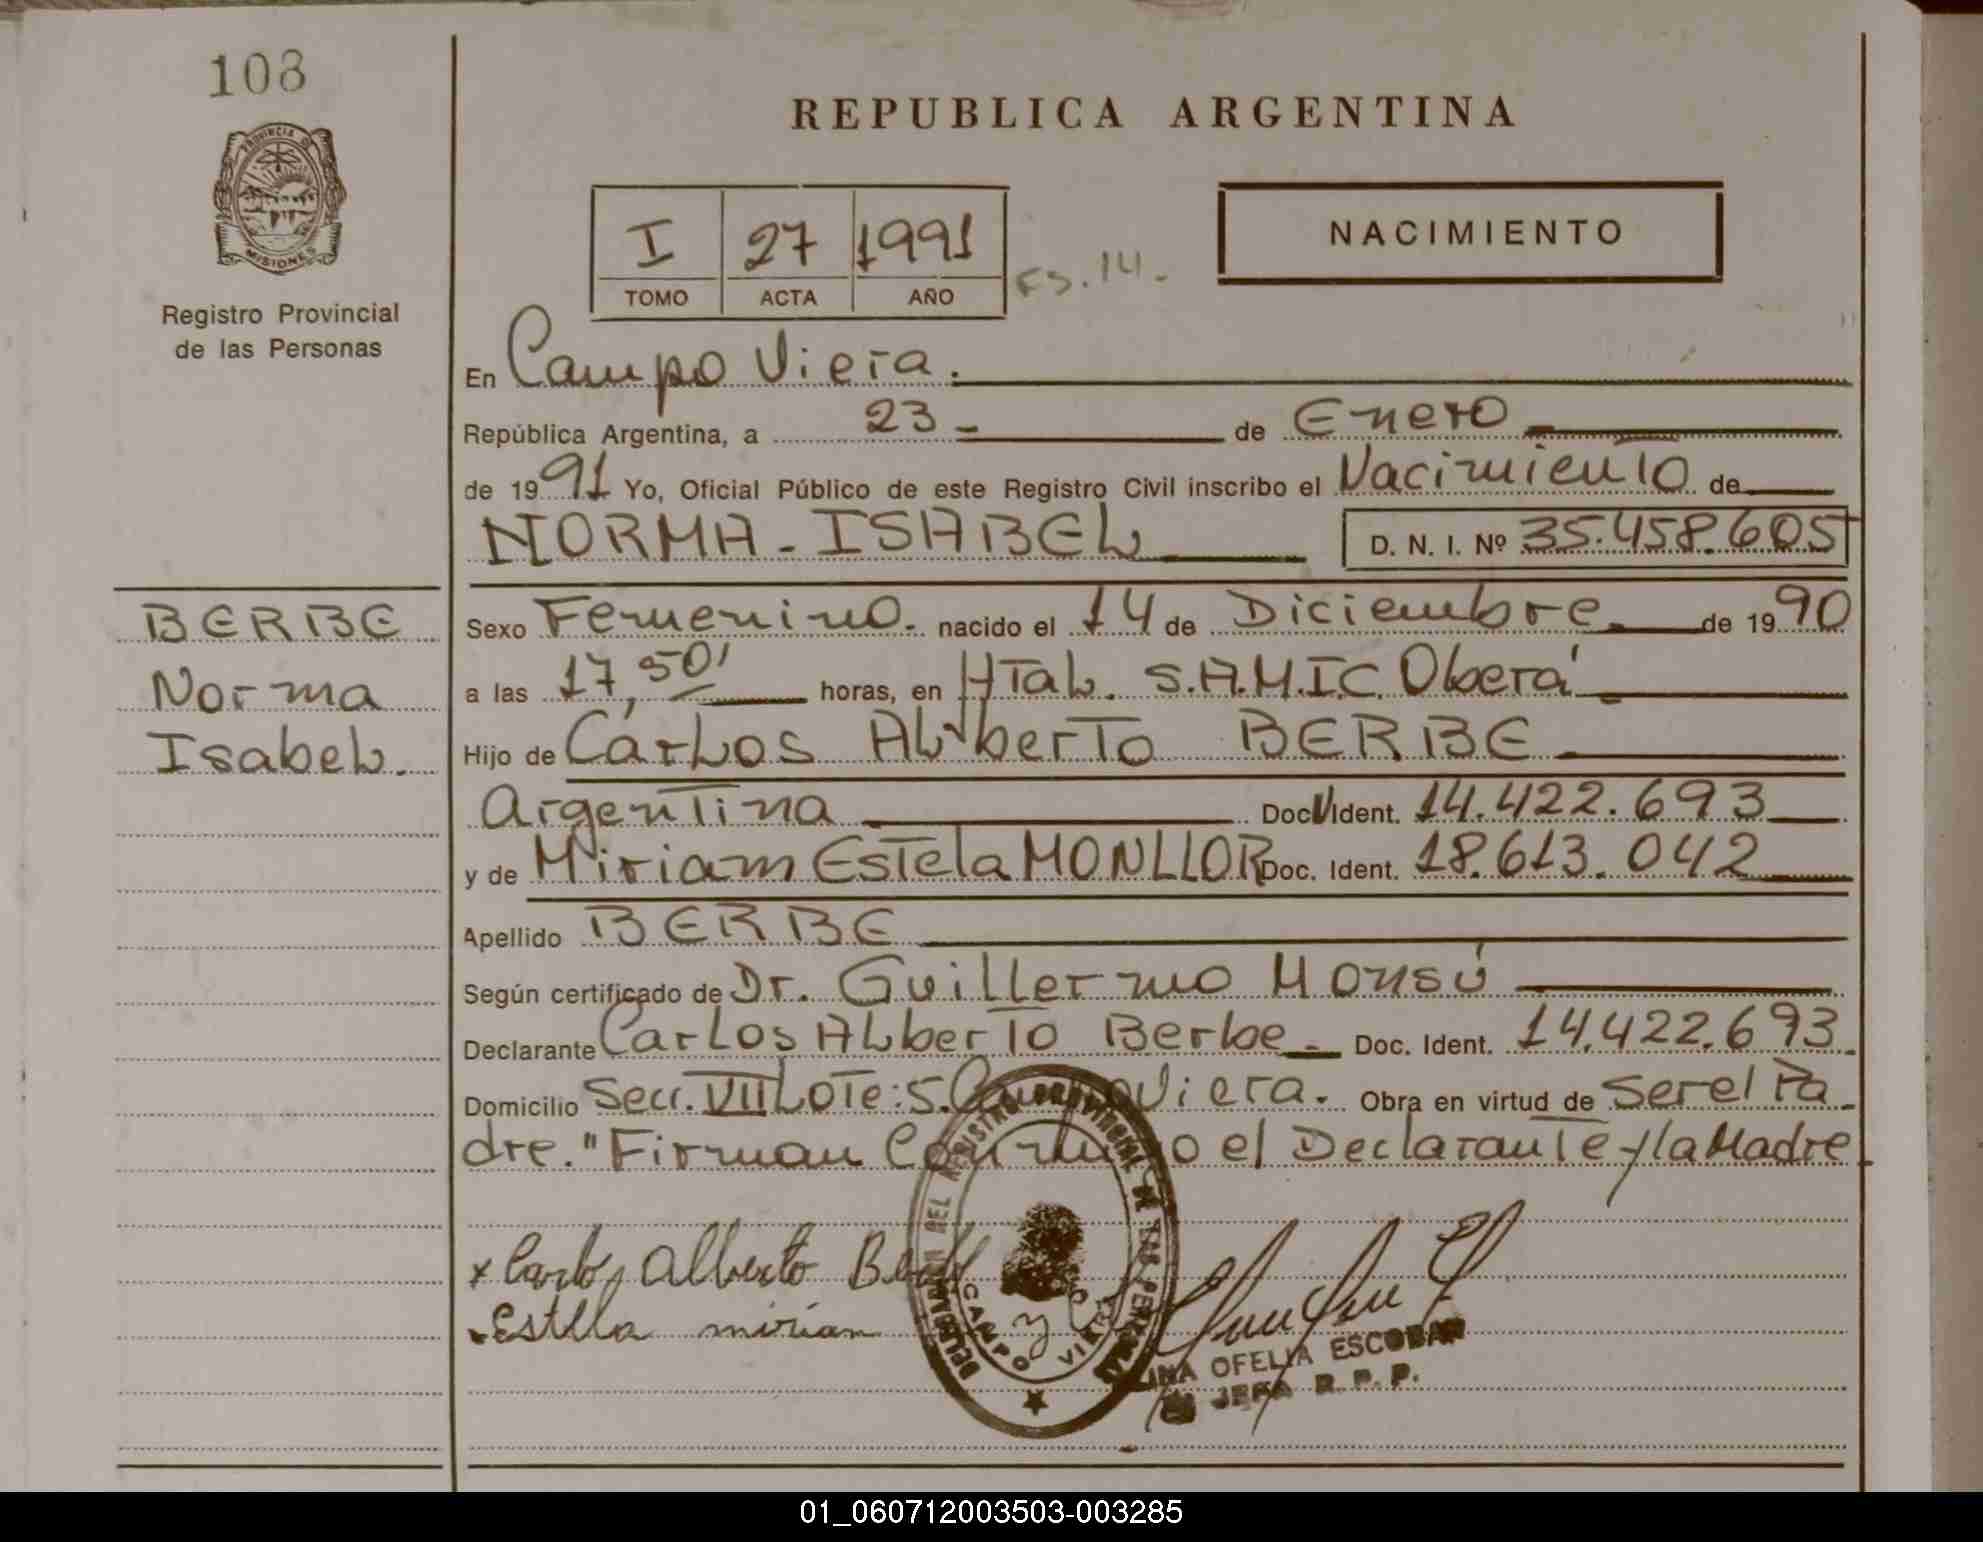 108
PROVINCIA DE
MISIONES
Registro Provincial
de las Personas
BERBE
Norma
Isabel.
REPUBLICA ARGENTINA
I 27 1991
TOMO ACTA AÑO
Fs. 14.-
NACIMIENTO
En Campo Viera.
República Argentina, a 23 - de Enero
de 1991 Yo, Oficial Público de este Registro Civil inscribo el Nacimiento de
NORMA - ISABEL D. N. I. Nº 35.458.605
Sexo Femenino. nacido el 14 de Diciembre. de 1990
a las 17,50' horas, en HTal. S.A.M.I.C. Oberá
Hijo de Carlos Alberto BERBE
Argentina Doc. Ident. 14.422.693
y de Miriam Estela MONLLOR Doc. Ident. 18.613.042
Apellido BERBE
Según certificado de Dr. Guillermo Monsú
Declarante Carlos Alberto Berbe - Doc. Ident. 14.422.693
Domicilio Secc. VII Lote: 5. Campo Viera. Obra en virtud de Ser el Pa-
dre. "Firman Conmigo el Declarante y la Madre
x Carlos Alberto
Estella mirian
DELEGACION DEL REGISTRO PROVINCIAL DE LAS PERSONAS
CAMPO VIERA
OFELIA ESCOBAR
JEFA R. P. P.
01_060712003503-003285